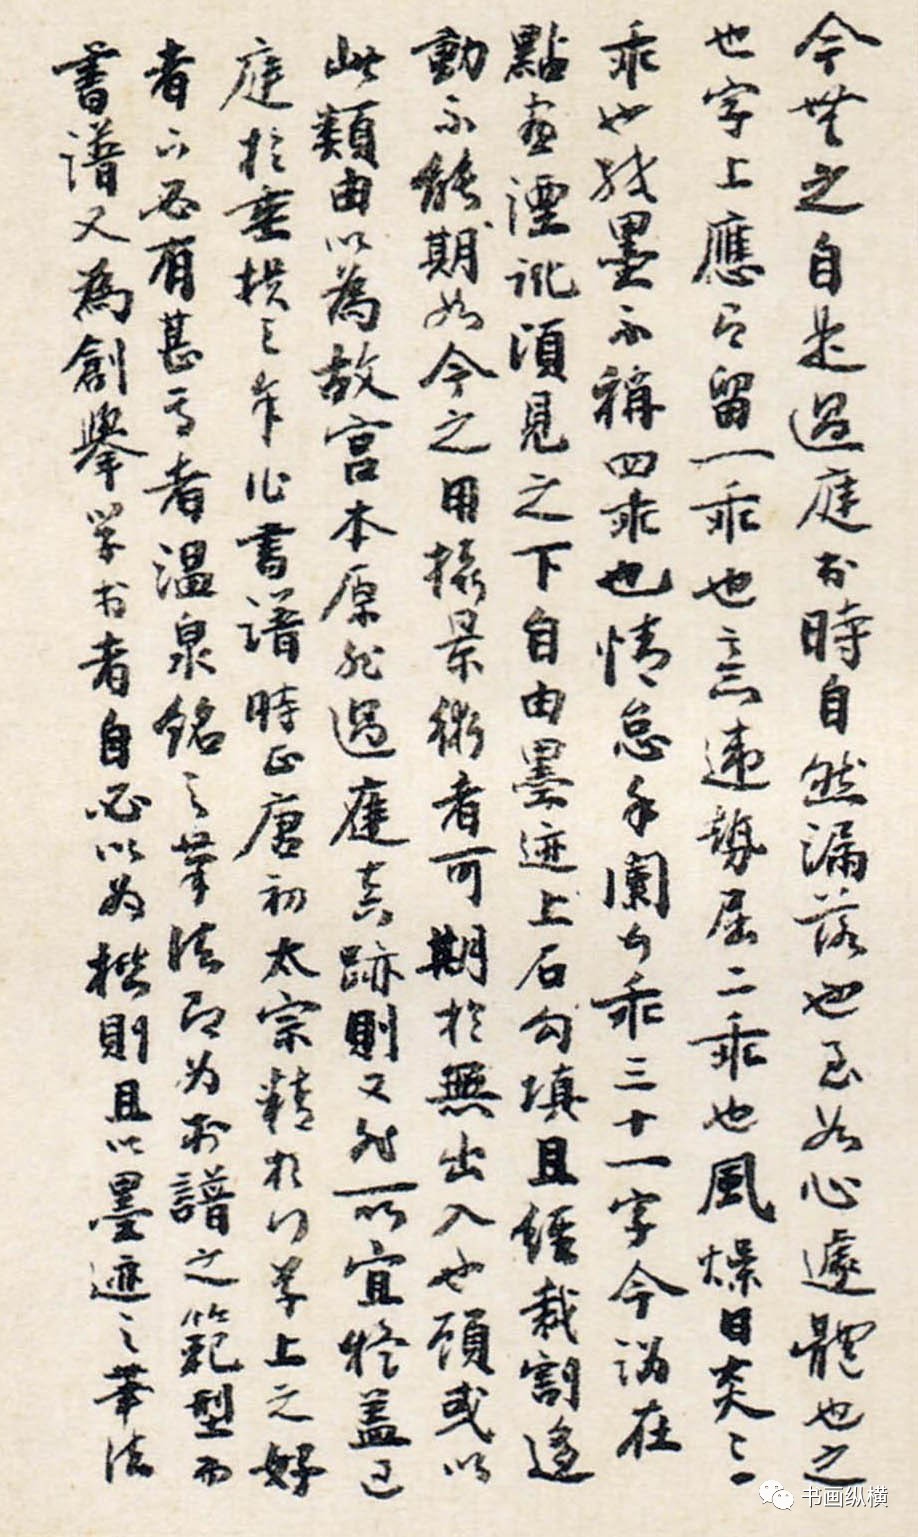 今無之自是過庭書時自然漏落也至如心遽體也之
也字上應為留一乖也意違勢屈二乖也風燥日炎三
乖也紙墨不稱四乖也情怠手闌五乖三十一字今誤在
點畫湮訛須見之下自由墨迹上石勾填且經裁割遂
動不能期如今之用攝景術者可期於無出入也頃或以
此類由以為故宮本原非過庭真跡則又非所宜惟蓋過
庭於垂拱之年作書譜時正唐初太宗精於行草上之好
者下必有甚焉者溫泉銘之筆法即為書譜之範型而
書譜又為創舉學書者自必以為楷則且以墨迹之筆法
书画纵横